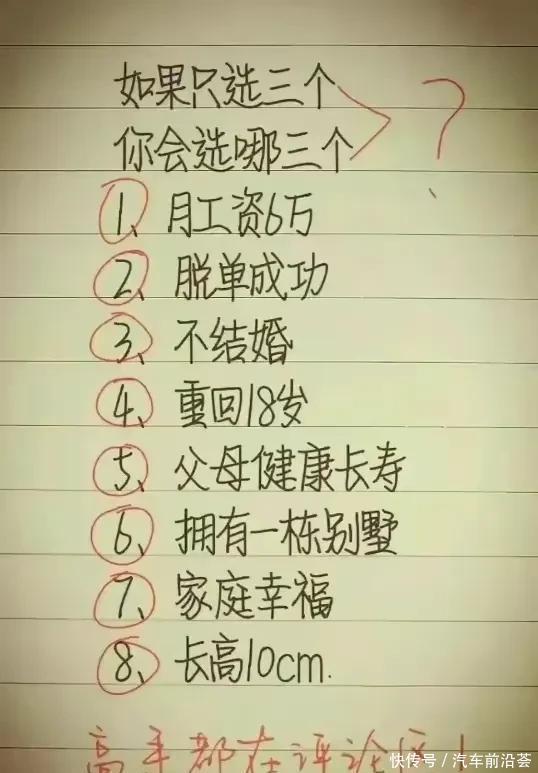 如果只选三个
你会选哪三个
?
1、月工资6万
2、脱单成功
3、不结婚
4、重回18岁
5、父母健康长寿
6、拥有一栋别墅
7、家庭幸福
8、长高10cm.
高手都在评论区!
快传号/汽车前沿荟